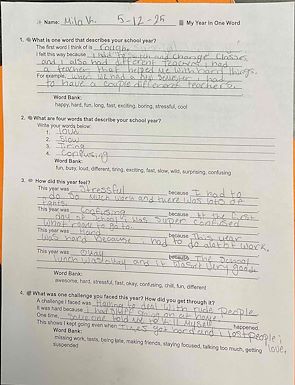 Name: Mila V. 5-12-25 My Year in One Word
1. What is one word that describes your school year?
The first word I think of is rough.
I felt this way because I had to switch and change classes
and I also had different teachers. I had
a teacher that helped me with hard things.
For example, when we had a new semester I had
to have a couple different teachers.
Word Bank:
happy, hard, fun, long, fast, exciting, boring, stressful, cool
2. What are four words that describe your school year?
Write your words below:
1. loud
2. Slow
3. Tiring
4. Confusing
Word Bank:
fun, busy, loud, different, tiring, exciting, fast, slow, wild, surprising, confusing
3. How did this year feel?
This year was Stressful because I had to
do so much work and there was lots of
This year was Confusing because at the first
day of school I was super confused
what room to go to.
This year was Hard because This year
was hard because I had to do alot of work.
This year was Okay because The School
work was okay and it wasnt very good
Word Bank:
awesome, hard, stressful, fast, okay, confusing, chill, fun, different
4. What was one challenge you faced this year? How did you get through it?
A challenge I faced was Having to deal with rude People
It was hard because I had stuff going on at home.
One time, Some one told me to kill myself happened.
This shows I kept going even when Times got hard and I lost People i
love.
Word Bank:
missing work, tests, being late, making friends, staying focused, talking too much, getting
suspended